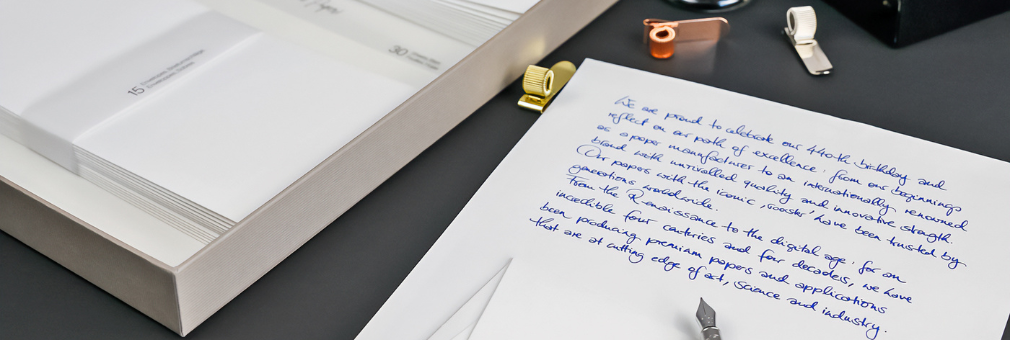 15
30
We are proud to celebrate our 440th birthday and
reflect on our path of excellence: from our beginnings
as a paper manufacturer to an internationally renowned
brand with unrivalled quality and innovative strength.
Our papers with the iconic ‚rooster' have been trusted by
generations worldwide.
From the Renaissance to the digital age: for an
incredible four centuries and four decades, we have
been producing premium papers and applications
that are at cutting edge of art, science and industry.